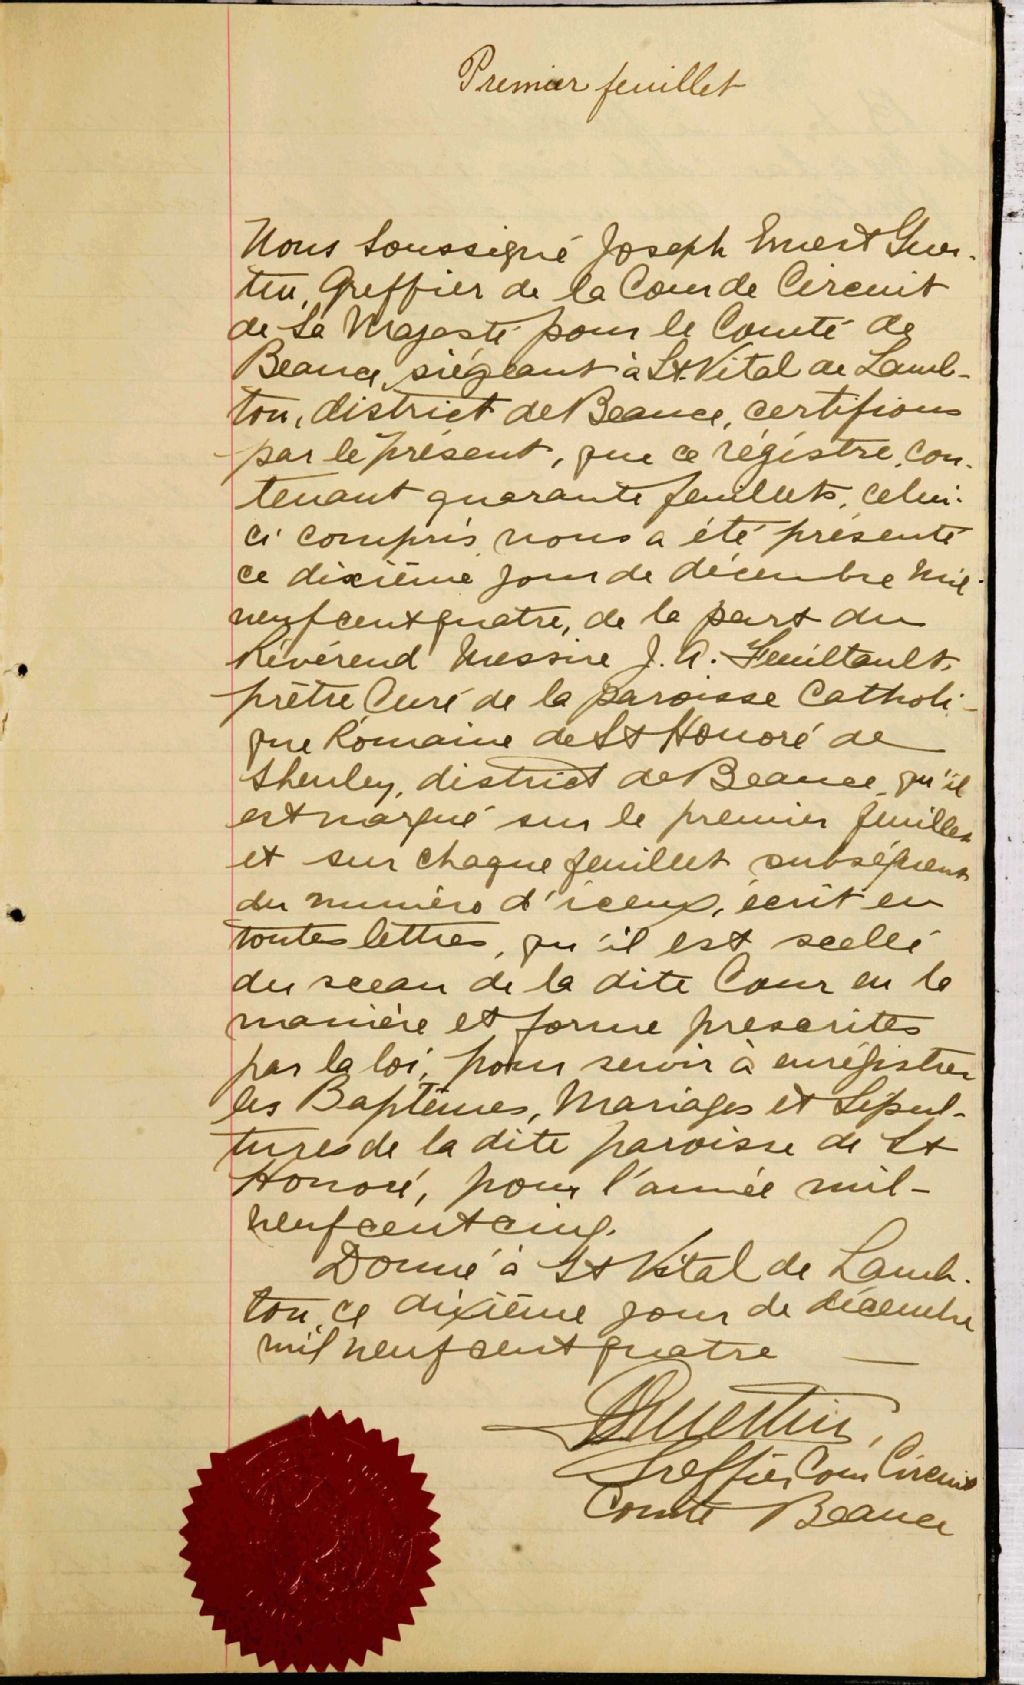 Premier feuillet
Nous Soussigné Joseph Ernest Guer-
tin, Greffier de la Cour de Circuit
de Sa Majesté pour le Comté de
Beauce, siégeant à St. Vital de Lamb-
ton, district de Beauce, certifions
par le présent, que ce régistre, con-
tenant quarante feuillets, celui-
ci compris, nous a été présenté
ce dixième jour de décembre mil-
neuf cent quatre, de la part du
Révérend Messire J. A. Feuiltault,
prêtre Curé de la paroisse Catholi-
que Romaine de St Honoré de
Shenley, district de Beauce, qu'il
est marqué sur le premier feuillet
et sur chaque feuillet subséquent
du numéro d'iceux, écrit en
toutes lettres, qu'il est scellé
du sceau de la dite Cour en la
manière et forme prescrites
par la loi, pour servir à enrégistrer
les Baptêmes, Mariages et Sépul-
tures de la dite paroisse de St
Honoré, pour l'année mil-
neuf cent cinq.
Donné à St Vital de Lamb-
ton, ce dixième jour de décembre
mil neuf cent quatre —
Guertin,
Greffier Cour Circuit
Comté Beauce